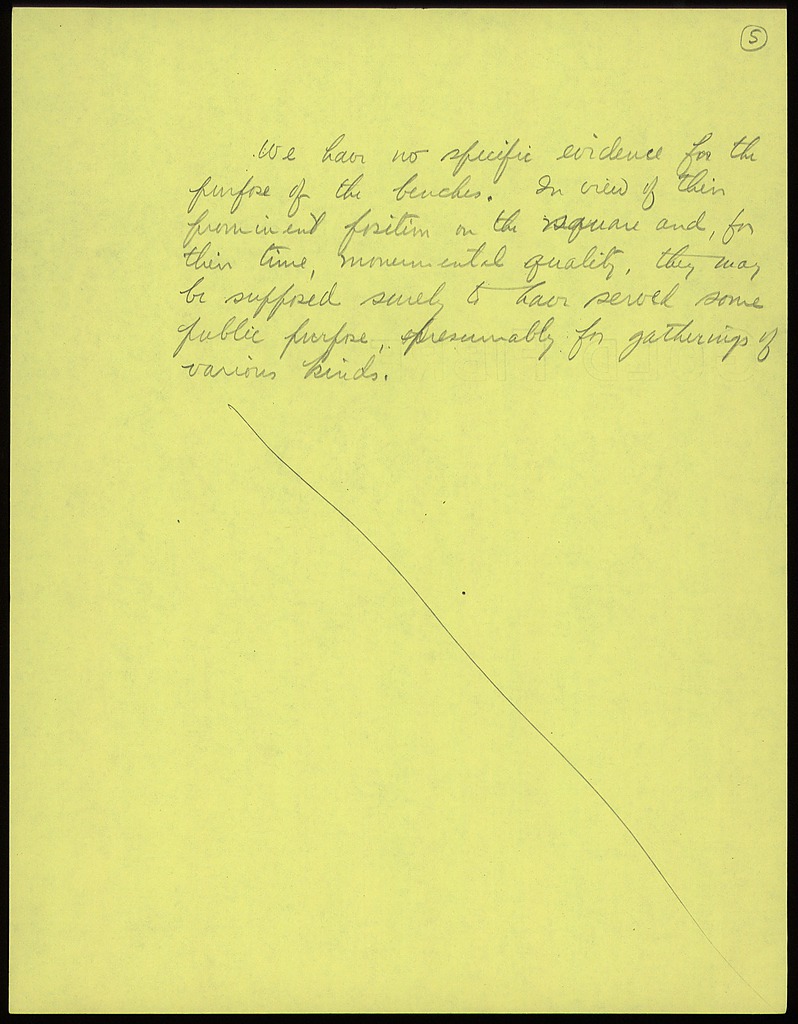 5
We have no specific evidence for the
purpose of the benches. In view of their
prominent position on the square and, for
their time, monumental quality, they may
be supposed surely to have served some
public purpose, presumably for gatherings of
various kinds.